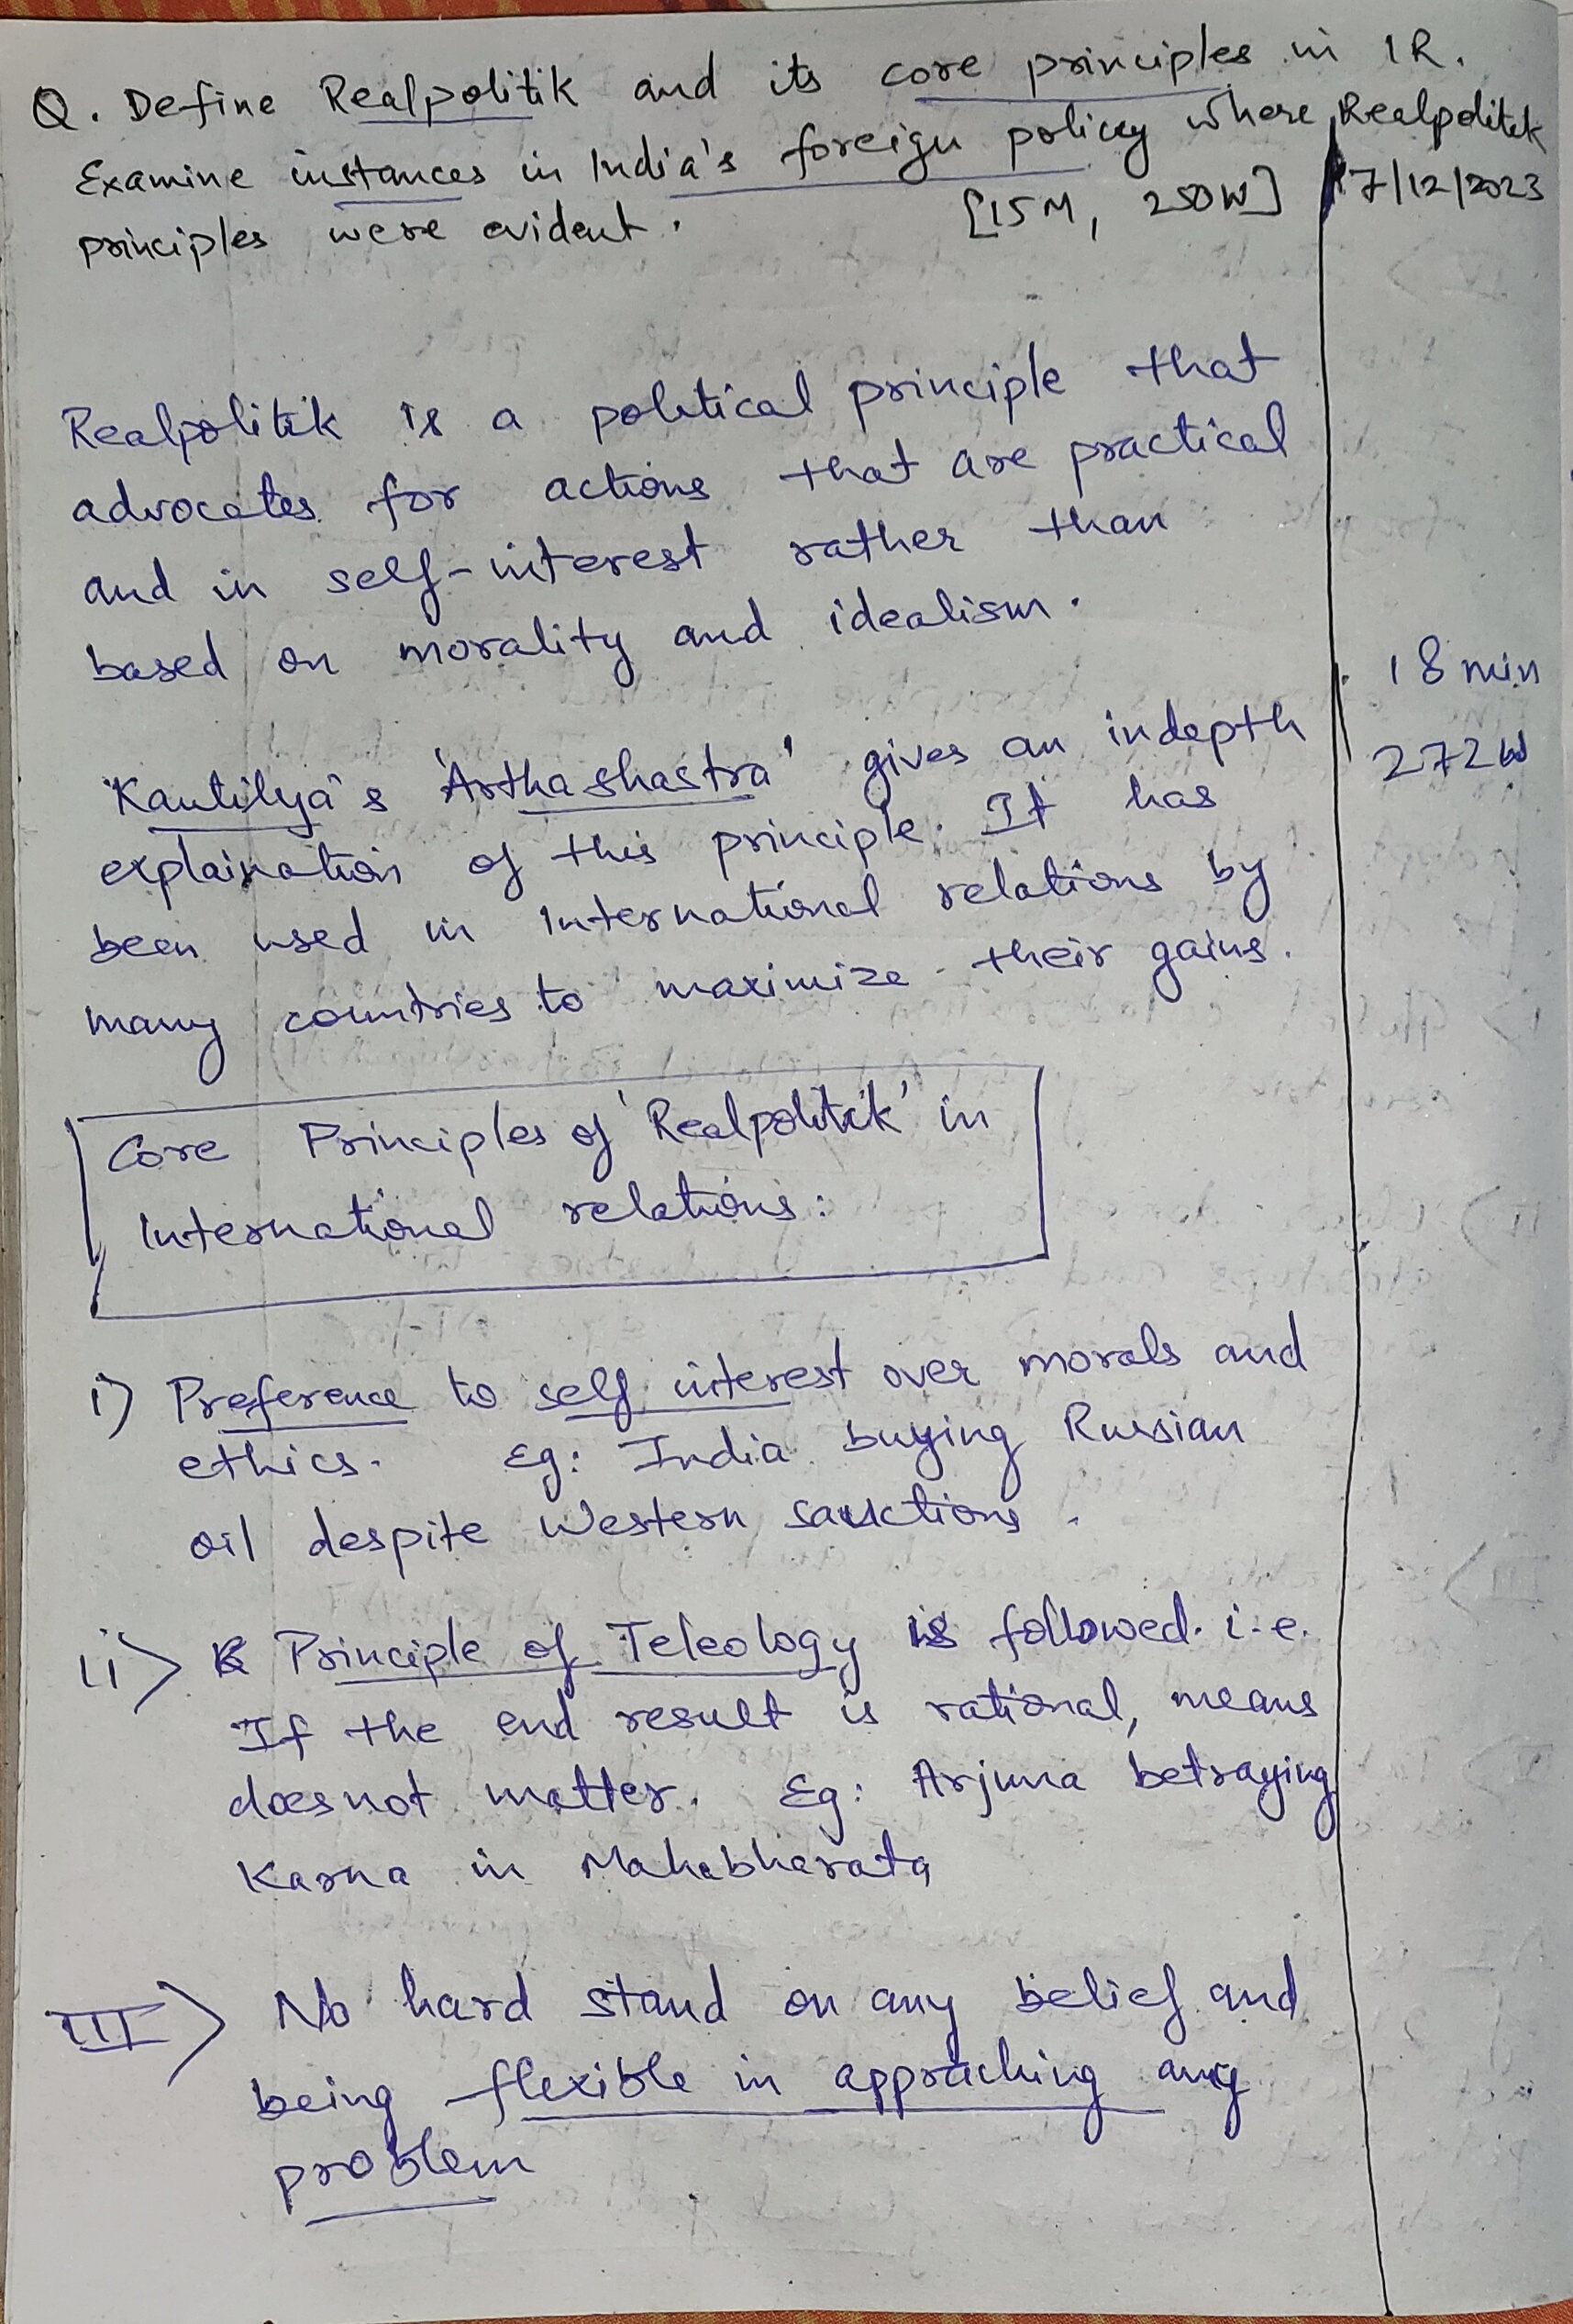 Q. Define Realpolitik and its core principles in IR.
Examine instances in India's foreign policy where Realpolitik
principles were evident. [15M, 250W] 17/12/2023
Realpolitik is a political principle that
advocates for actions that are practical
and in self-interest rather than
based on morality and idealism.
18 min
Kautilya's 'Arthashastra' gives an indepth
272W
explaination of this principle. It has
been used in International relations by
many countries to maximize their gains.
Core Principles of 'Realpolitik' in
International relations:
i) Preference to self interest over morals and
ethics. Eg: India buying Russian
oil despite Western sanctions.
ii) Principle of Teleology is followed. i.e.
If the end result is rational, means
doesnot matter. Eg: Arjuna betraying
Karna in Mahabharata
III) No hard stand on any belief and
being flexible in appraching any
problem